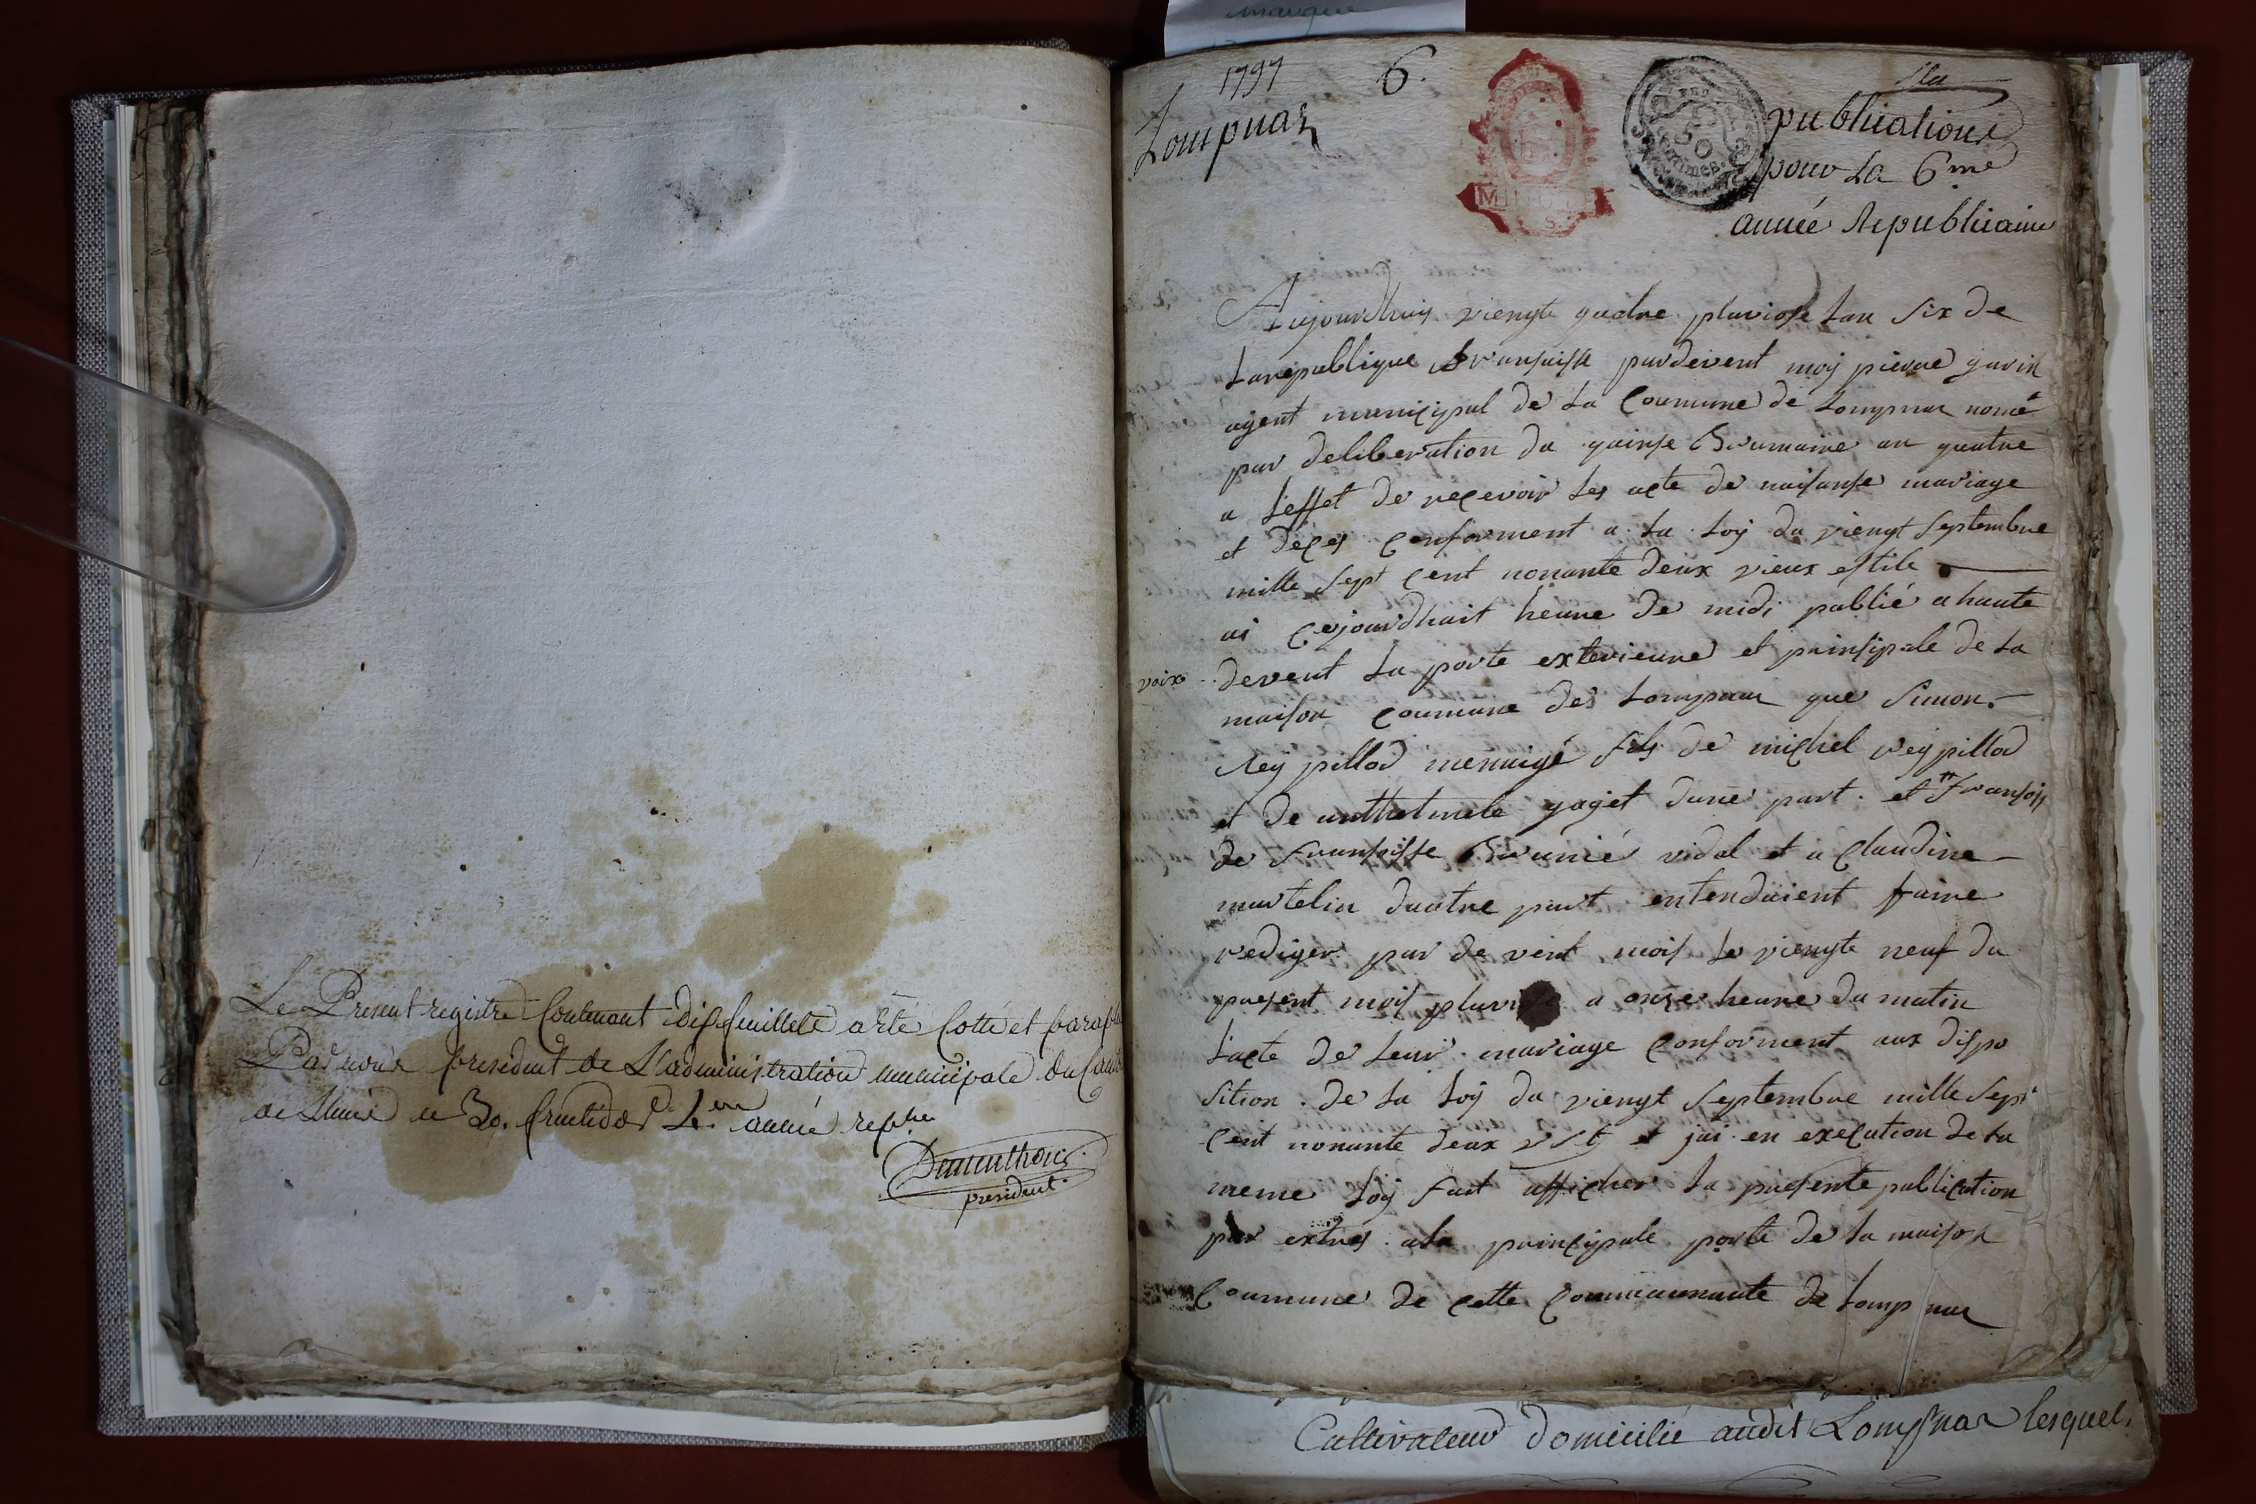 Le Present registre Contenant dix feuillets a été Cotté et paraphé
Par nous president de L'administration municipale du Canton
de Lhuis le 30. fructidor 5.eme année rep.ne
president.
1797
6.
Lompnaz
publications
pour la 6.me
année Republicaine
Aujourdhuy viengte quatre pluviose lan Six de
la republique fransaise pardevent moy pierre gavin
agent municipal de la Commune de Lompnaz nomé
par deliberation du quinse Brumaire an quatre
a leffet de recevoir les acte de naisanse mariage
et deces conforment a la loy du viengt Septembre
mille Sept Cent nonante deux vieux estile
ai cejourdhuit heure de midi publié a haute
voix devent la porte exterieure et prinsipale de la
maison Commune de Lompnaz que Simon
Rey pillod menagé fils de michel rey pillod
et de anthelmele gaget dune part. et
de fransisse Brunié vidal et a Claudine
martelin dautre part entendaient faire
rediger par de vent mois le viengte neuf du
present mois pluviose a onze heure du matin
lacte de leur mariage Conforment aux dispo
sition de la loy du viengt Septembre mille Sept
Cent nonante deux v st et jai en execution de la
meme loy fait afficher la presente publication
par extres a la principale porte de la maison
Commune de cette Communauté de Lompnaz
Cultivateur domicilié audit Lompnaz lesquel